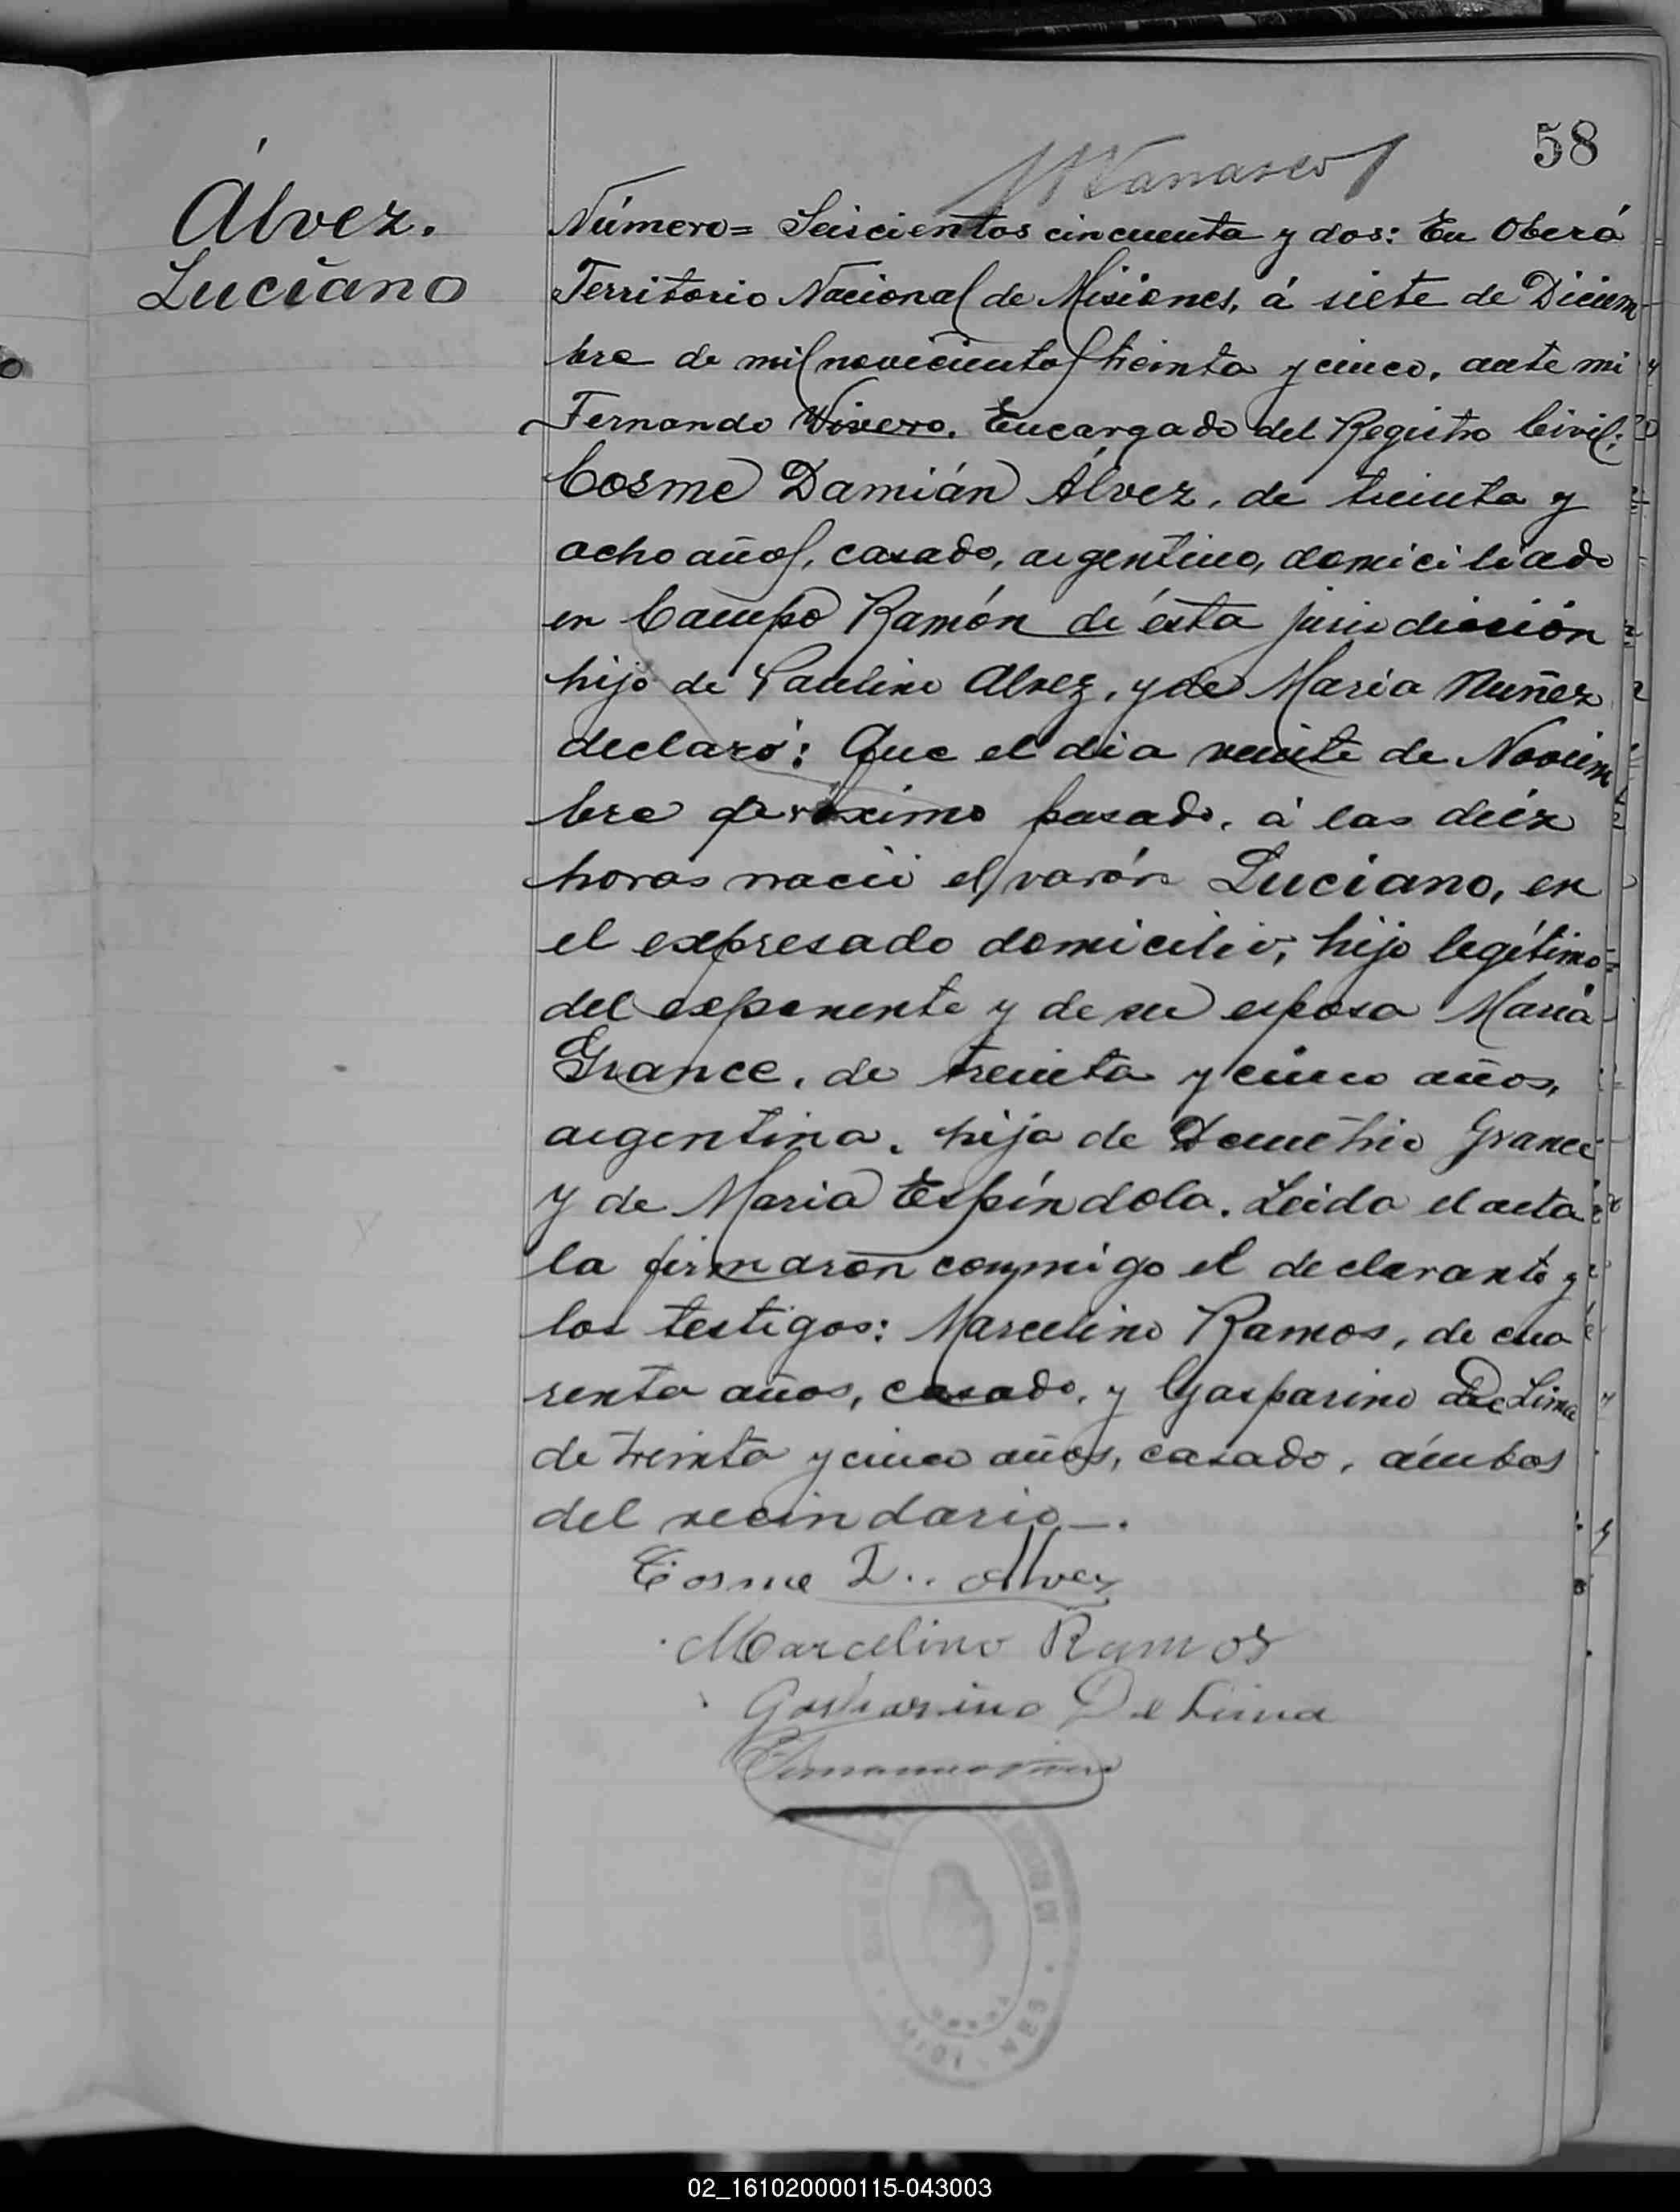 58
Álvez.
Luciano
Número= Seiscientos cincuenta y dos: En Oberá
Territorio Nacional de Misiones, á siete de Diciem
bre de mil novecientos treinta y cinco, ante mi
Fernando Vivero, Encargado del Registro Civil;
Cosme Damián Álvez, de treinta y
ocho años, casado, argentino, domiciliado
en Campo Ramón de ésta jurisdicción
hijo de Paulino Alvez, y de María Nuñez
declaró: Que el dia veinte de Noviem
bre próximo pasado, á las diéz
horas nació el varón Luciano, en
el expresado domicilio, hijo legítimo
del exponente y de su esposa María
Grance, de treinta y cinco años,
argentina, hija de Demetrio Grance
y de Maria Espíndola. Leida el acta
la firmaron conmigo el declarante y
los testigos: Marcelino Ramos, de cua
renta años, casado, y Gasparino De Lima
de treinta y cinco años, casado, ámbos
del vecindario—.
Cosme D.. Alvez
Marcelino Ramos
Gasparino De Lima
02_161020000115-043003